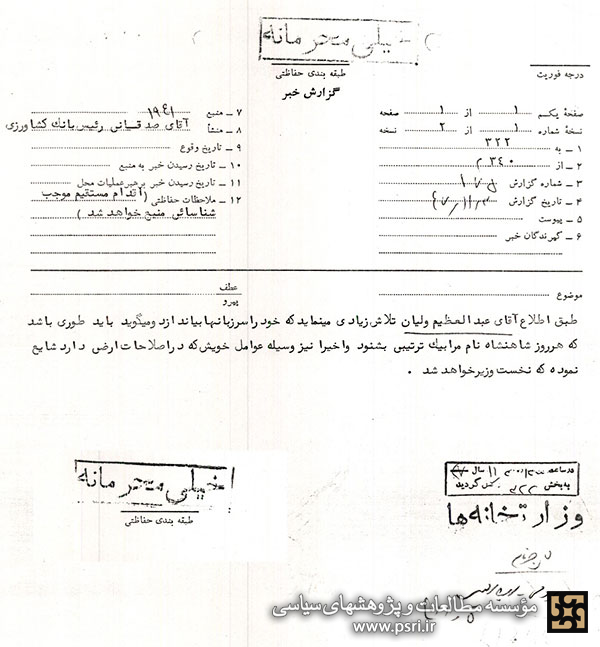 خیلی محرمانه
طبقه بندی حفاظتی
درجه فوریت
گزارش خبر
صفحهٔ یکم ۱ از ۱ صفحه
نسخهٔ شماره ۱ از ۲ نسخه
۱ ـ به ۳۲۲
۲ ـ از ۳۴۰
۳ ـ شماره گزارش
۴ ـ تاریخ گزارش
۵ ـ پیوست
۶ ـ گیرندگان خبر
۷ ـ منبع ۱۹۴۱
۸ ـ منشأ آقای صدقیانی رئیس بانک کشاورزی
۹ ـ تاریخ وقوع
۱۰ ـ تاریخ رسیدن خبر به منبع
۱۱ ـ تاریخ رسیدن خبر برهبر عملیات محل
۱۲ ـ ملاحظات حفاظتی (اقدام مستقیم موجب
شناسائی منبع خواهد شد)
موضوع
عطف
پیرو
طبق اطلاع آقای عبدالعظیم ولیان تلاش زیادی مینماید که خود را سر زبانها بیاندازد و میگوید باید طوری باشد
که هرروز شاهنشاه نام مرا بیک ترتیبی بشنود و اخیرا نیز وسیله عوامل خویش که در اصلاحات ارضی دارد شایع
نموده که نخست وزیر خواهد شد .
خیلی محرمانه
طبقه بندی حفاظتی
در ساعت
به بخش ۳۲۲ گردید
وزارتخانه ها
مؤسسه مطالعات و پژوهشهای سیاسی
www.psri.ir